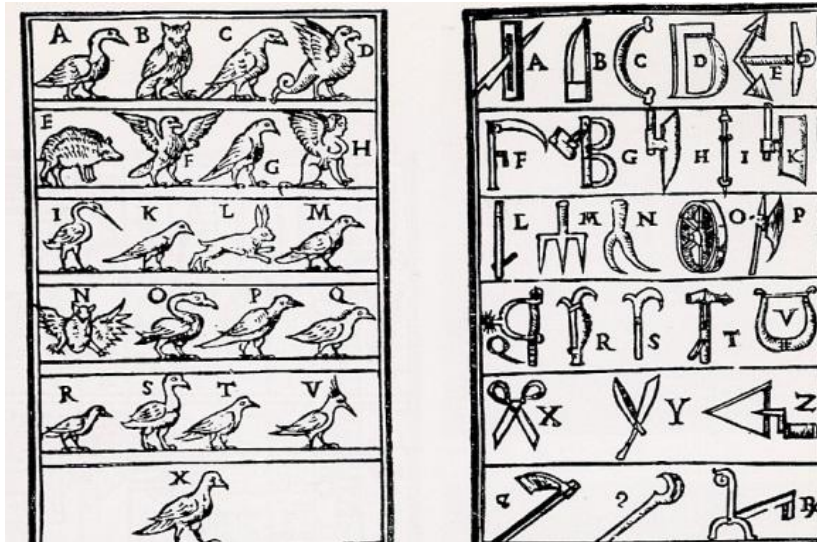 A B C D
E F G H
I K L M
N O P Q
R S T V
X
A B C D E
F G H I K
L M N O P
Q R S T V
X Y Z